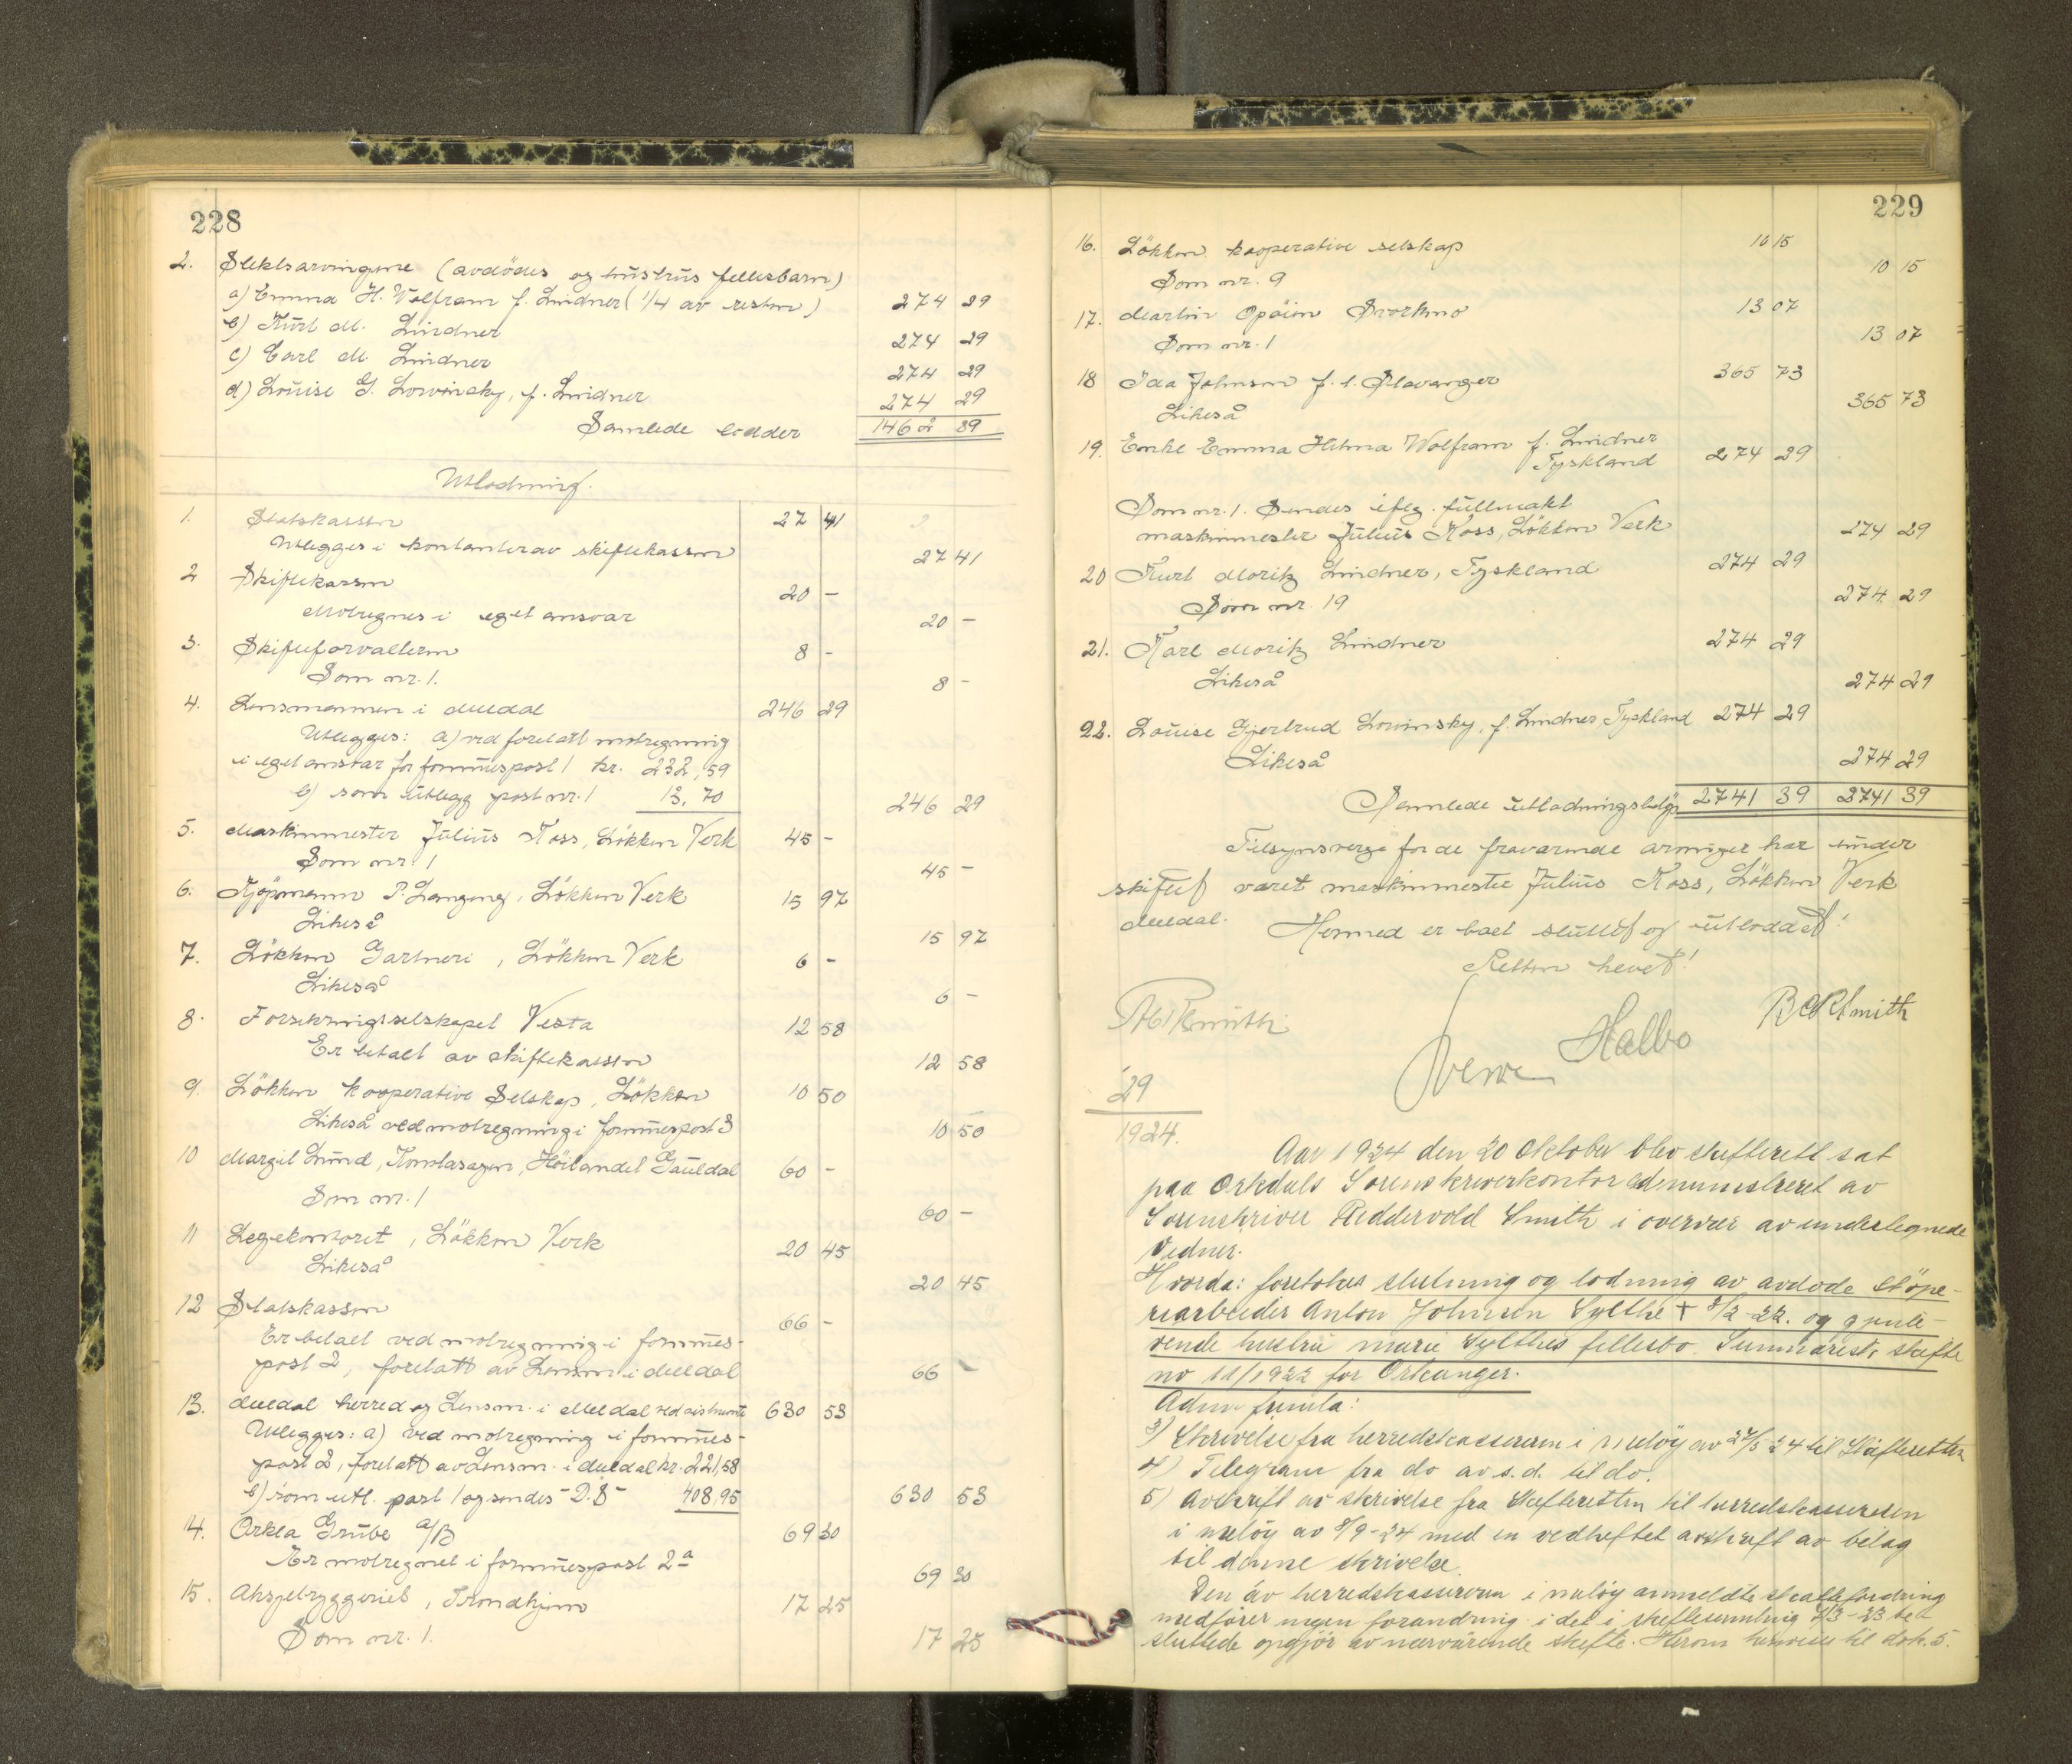 228
2. Slektsarvingene (avdödes og hustrus fellesbarn)
a) Emma H. Wolfram f. Lindner (1/4 av resten) 274 29
b) Kurt M. Lindner 274 29
c) Carl M. Lindner 274 29
d) Louise G. Lowinsky, f. Lindner 274 29
Samlede lodder 1462 89
Utlodning.
1. Statskassen 27 41
Utlegges i kontanter av skiftekassen 27 41
2 Skiftekassen 20 -
Motregnes i eget ansvar 20 -
3. Skifteforvalteren 8 -
Som nr. 1. 8 -
4. Lensmannen i Meldal 246 29
Utlegges: a) ved foretatt motregning
i eget ansvar for formuespost 1 kr. 232,59
b) som utlegg post nr. 1 13,70 246 29
5. Maskinmester Julius Koss, Lökken Verk 45 -
Som nr. 1 45 -
6. Kjöpmann P. Langeng, Lökken Verk 15 97
Likeså 15 97
7. Lökken Gartneri, Lökken Verk 6 -
Likeså 6 -
8. Forsikringsselskapet Vesta 12 58
Er betalt av skiftekassen 12 58
9. Lökken kooperative Selskap, Lökken 10 50
Likeså ved motregning i formuespost 3 10 50
10 Margit Lund, Höilandet Gauldal 60 -
Som nr. 1 60 -
11 Legekontoret, Lökken Verk 20 45
Likeså 20 45
12 Statskassen 66 -
Er betalt ved motregning i formues-
post 2, foretatt av Lensm. i Meldal 66 -
13. Meldal herred og Lensm. i Meldal 630 53
Utlegges: a) ved motregning i formues-
post 2, foretatt av Lensm. i Meldal kr. 221,58
b) som utl. post 1 og sendes - 408,95 630 53
14. Orkla Grube A/B 69 30
Er motregnet i formuespost 2a 69 30
15. Aksjebryggeriet, Trondhjem 17 25
Som nr. 1. 17 25
229
16. Lökken kooperative selskap 10 15
Som nr. 9 10 15
17. Martin Opöien Svorkmo 13 07
Som nr. 1 13 07
18 Ida Johnsen f. t. Stavanger 365 73
Likeså 365 73
19. Enke Emma Helma Wolfram f. Lindner
Tyskland 274 29
Som nr. 1. Sendes iflg. fullmakt
maskinmester Julius Koss, Lökken Verk 274 29
20 Kurt Moritz Lindner, Tyskland 274 29
Som nr. 19 274 29
21. Karl Moritz Lindner 274 29
Likeså 274 29
22. Louise Gjertrud Lowinsky, f. Lindner, Tyskland 274 29
Likeså 274 29
Samlede utlodningsbelöp 2741 39 2741 39
Tilsynsverge for de fraværende arvinger har under
skiftet været maskinmester Julius Koss, Lökken Verk
Meldal.
Hermed er boet sluttet og utloddet!
Retten hevet!
Smith
Sverre Halbo
Smith
29
1924.
Aar 1924 den 20 Oktober blev skifterett sat
paa Orkdals Sorenskriverkontor administreret av
Sorenskriver Fleddervold Smith i overvær av undertegnede
Vidner.
Hvorda: foretokes slutning og lodning av avdøde støpe-
riarbeider Anton Johnsen Sylthe + 8/2-22. og gjenle-
vende hustru Marie Sylthes fellesbo. Summarisk skifte
no 11/1922 for Orkanger.
Adm. fremla:
3) Skrivelse fra herredskassereren i Meløy av 22/5-24 til Skifteretten
4) Telegram fra do av s.d. til do.
5) Avskrift av skrivelse fra Skifteretten til herredskassereren
i Meløy av 8/9-24 med en vedheftet avskrift av bilag
til denne skrivelse.
Den av herredskassereren i Meløy anmeldte skattefordring
medfører ingen forandring i det i skiftesamling 2/3-23 be-
sluttede opgjør av nærværende skifte. Herom henvises til dok. 5.